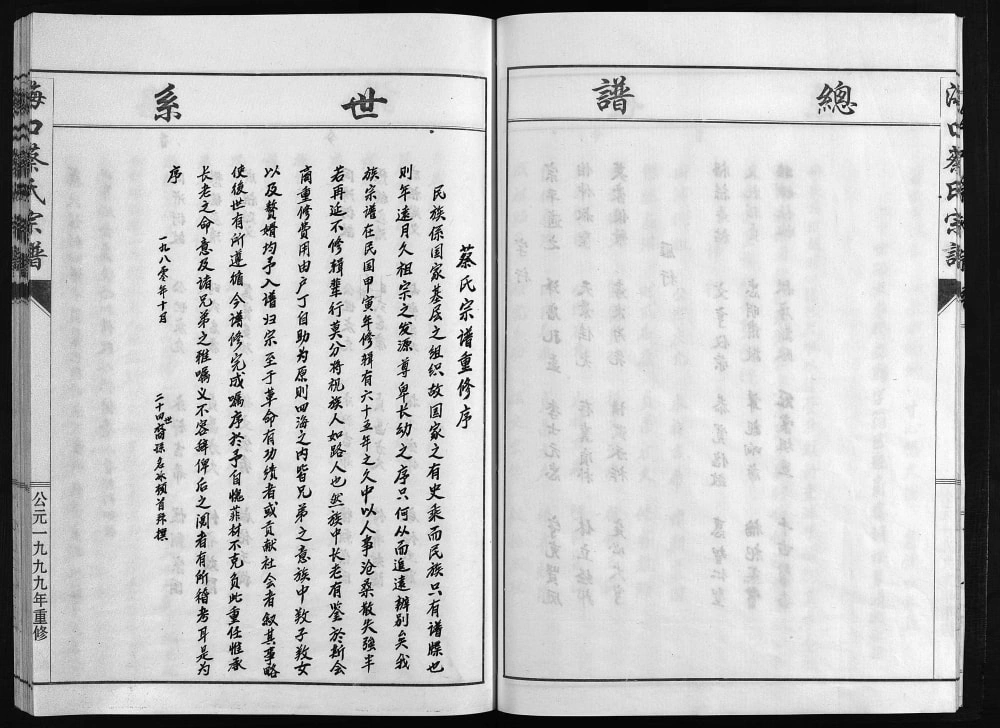 總譜
世系
蔡氏宗谱重修序
民族係国家基层之组织故国家之有史乘而民族只有谱牒也
则年遠月久祖宗之发源尊卑长幼之序只何从而追遠辨别矣我
族宗谱在民国甲寅年修辑有六十五年之久中以人事沧桑散失強半
若再延不修辑辈行莫分将视族人如路人也然族中长老有鉴於斯会
商重修费用由户丁自助为原则四海之内皆兄弟之意族中敎子敎女
以及赘婿均予入谱归宗至于革命有功绩者或贡献社会者叙其事略
使後世有所遵循今谱修完成嘱序於予自愧菲材不克负此重任惟承
长老之命意及诸兄弟之雅嘱义不容辞俾后之阅者有所稽考耳是为
序
一九八零年十月
二十四世裔孫名冰頓首拜撰
海口蔡氏宗譜
公元一九九九年重修